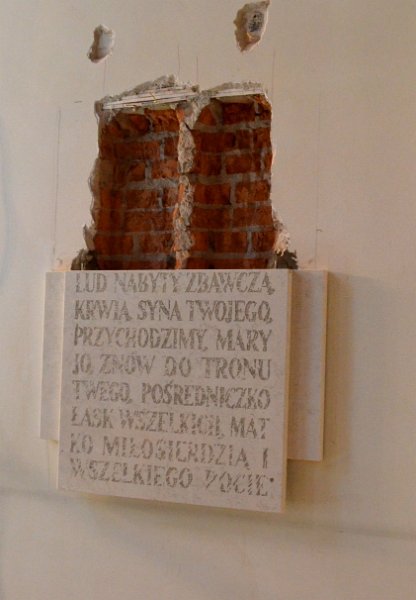 LUD NABYTY ZBAWCZĄ
KRWIĄ SYNA TWOJEGO,
PRZYCHODZIMY, MARY
JO, ZNÓW DO TRONU
TWEGO, POŚREDNICZKO
ŁASK WSZELKICH, MAT
KO MIŁOSIERDZIA I
WSZELKIEGO POCIE